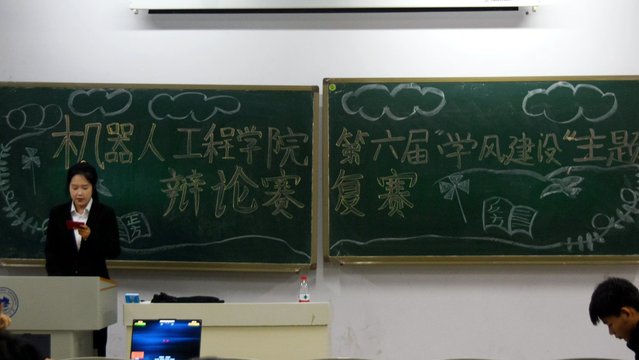 机器人工程学院 第六届"学风建设"主题
辩论赛 复赛